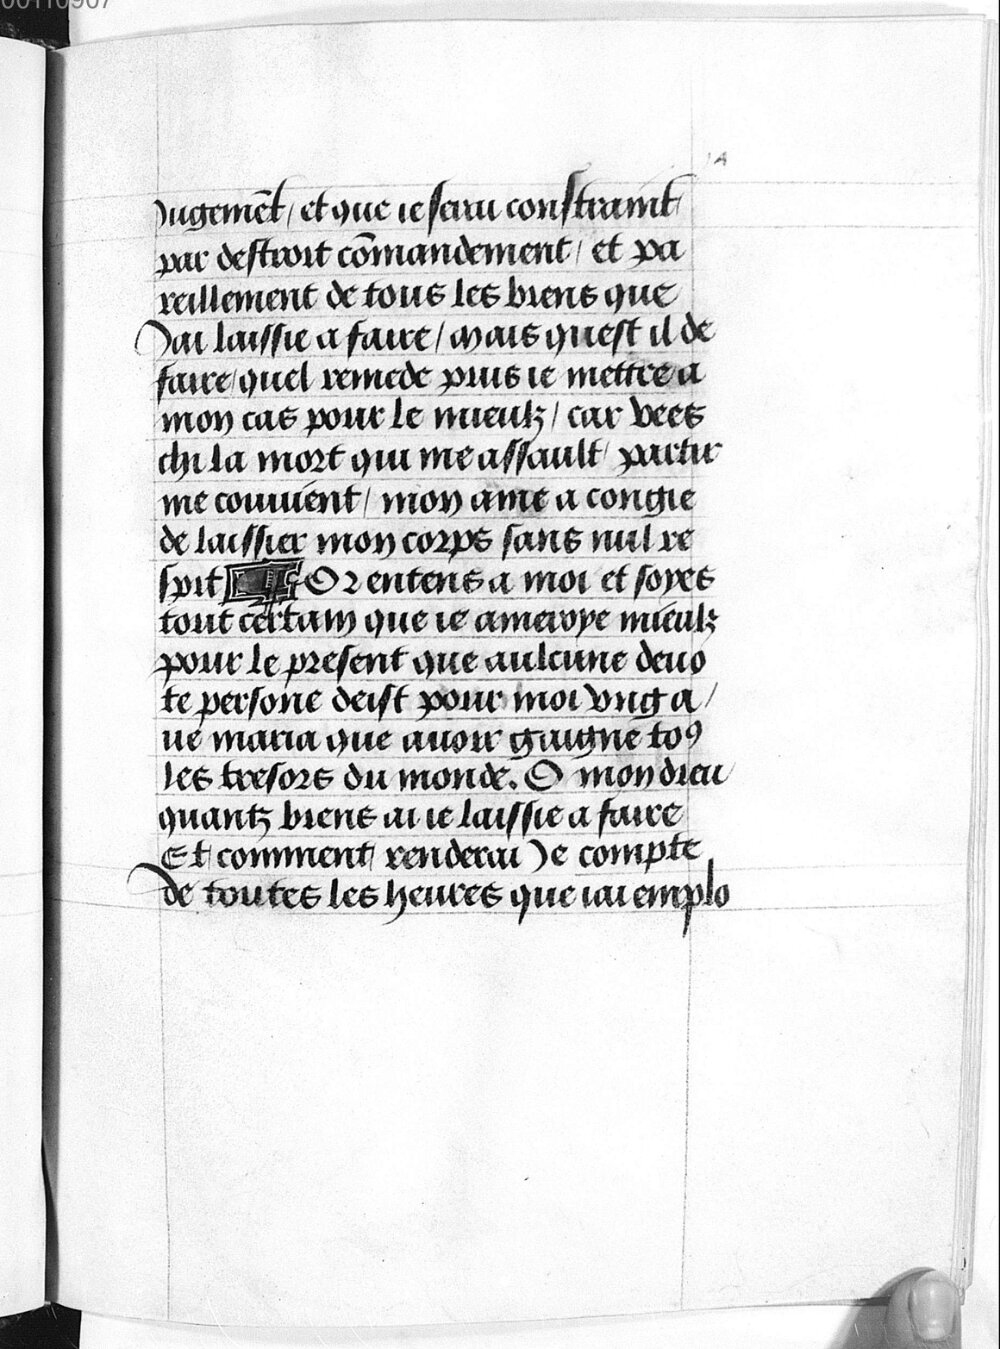 00110907
14
Jugemẽt / et que ie serai constraint
par destroit cõmandement / et pa
reillement de tous les biens que
Jai laissie a faire / mais quest il de
faire / quel remede puis ie mettre a
mon cas pour le mieulz / car vees
chi la mort qui me assault / partir
me couuient / mon ame a congie
de laissier mon corps sans nul re
spit Or entens a moi et soyes
tout certain que ie ameroye mieulz
pour le present que aulcune deuo
te persone deist pour moi vng a /
ue maria que auoir gaigne toꝰ
les tresors du monde. O mon dieu
quantz biens ai ie laissie a faire
Et comment renderai Je compte
de toutes les heures que iai emplo